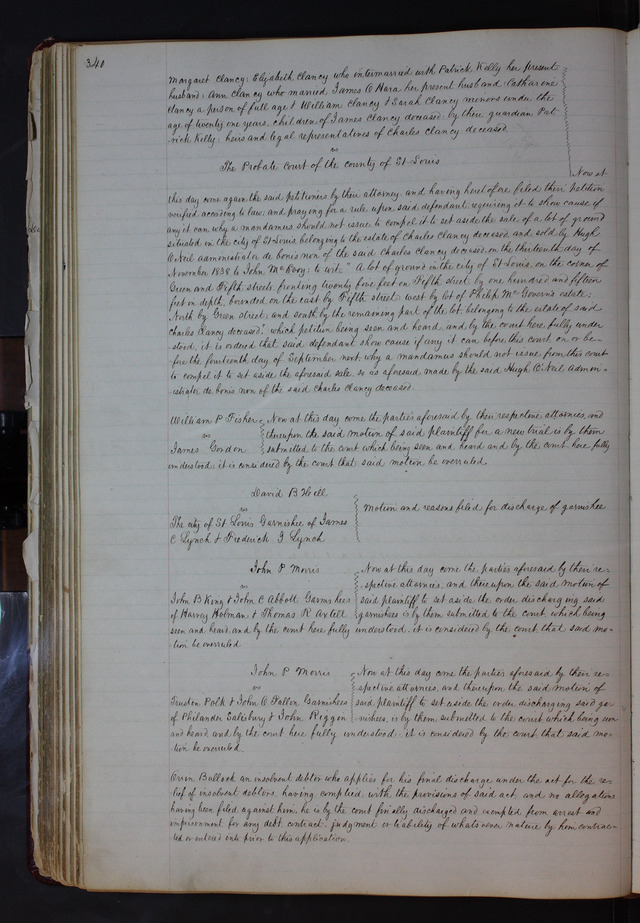 340
Margaret Clancy; Elizabeth Clancy who intermarried with Patrick Kelly her present
husband; Ann Clancy who married James O Hara her present husband; Catharine
Clancy a person of full age & William Clancy & Sarah Clancy menors under the
age of twenty one years, children of James Clancy deceased; by there guardian Pat-
rick Kelly; heirs and legal representatives of Charles Clancy deceased
vs
The Probate Court of the county of St Louis
Now at
this day come again the said petitioners by their attorney, and having heretofore filed their Petition
verified according to law, and praying for a rule upon said defendant; requiring it to show cause if
any it can why a mandamus should not issue to compel it to set aside the sale of a lot of ground
situated in the city of St Louis belonging to the estate of Charles Clancy deceased and sold by Hugh
O.Neil administrator de bonis non of the said Charles Clancy deceased, on the thirteenth day of
November 1838 to John McEvoy; to wit, "A lot of ground in the city of St Louis, on the corner of
Green and Fifth streets, fronting twenty five feet on Fifth street, by one hundred and fifteen
feet in depth, bounded on the east by Fifth street; west by lot of Philip McGovern's estate;
North by Green street; and south by the remaining part of the lot belonging to the estate of said
Charles Clancy deceased"; which petition being seen and heard, and by the court here fully under-
stood, it is ordered that said defendant show cause if any it can before this court on or be-
fore the fourteenth day of September next, why a mandamus should not issue from this court
to compel it to set aside the aforesaid sale, so as aforesaid made by the said Hugh O.Neil admin-
istrator de bonis non of the said Charles Clancy deceased.
William P Fisher Now at this day come the parties aforesaid by their respective attornies, and
vs thereupon the said motion of said plaintiff for a new trial is by them
James Gordon submitted to the court which being seen and heard and by the court here fully
understood; it is considered by the court that said motion be overruled.
David B Hill
vs Motion and reasons filed for discharge of garnishee
The city of St Louis Garnishee of James
C Lynch & Frederick J Lynch
John P Morris Now at this day come the parties aforesaid by their re-
vs spective attornies, and thereupon the said motion of
John B King & John C Abbott Garnishees said plaintiff to set aside the order discharging said
of Harvey Holman & Thomas R Axtell garnishees is by them submitted to the court which being
seen and heard, and by the court here fully understood, it is considered by the court, that said mo-
tion be overruled
John P Morris Now at this day come the parties aforesaid by their re-
vs spective attornies, and thereupon the said motion of
Trusten Polk & John O Fallon Garnishees said plaintiff to set aside the order discharging said gar-
of Philander Salisbury & John Riggen nishees, is by them submitted to the court which being seen
and heard and by the court here fully understood; it is considered by the court that said mo-
tion be overruled.
Orrin Bullock an insolvent debtor who applies for his final discharge under the act for the re-
lief of insolvent debtors, having complied with the provisions of said act, and no allegations
having been filed against him, he is by the court finally discharged and exempted from arrest and
imprisonment for any debt, contract, judgment or liability of whatsoever nature by him contrac-
ted or entered into prior to this application.